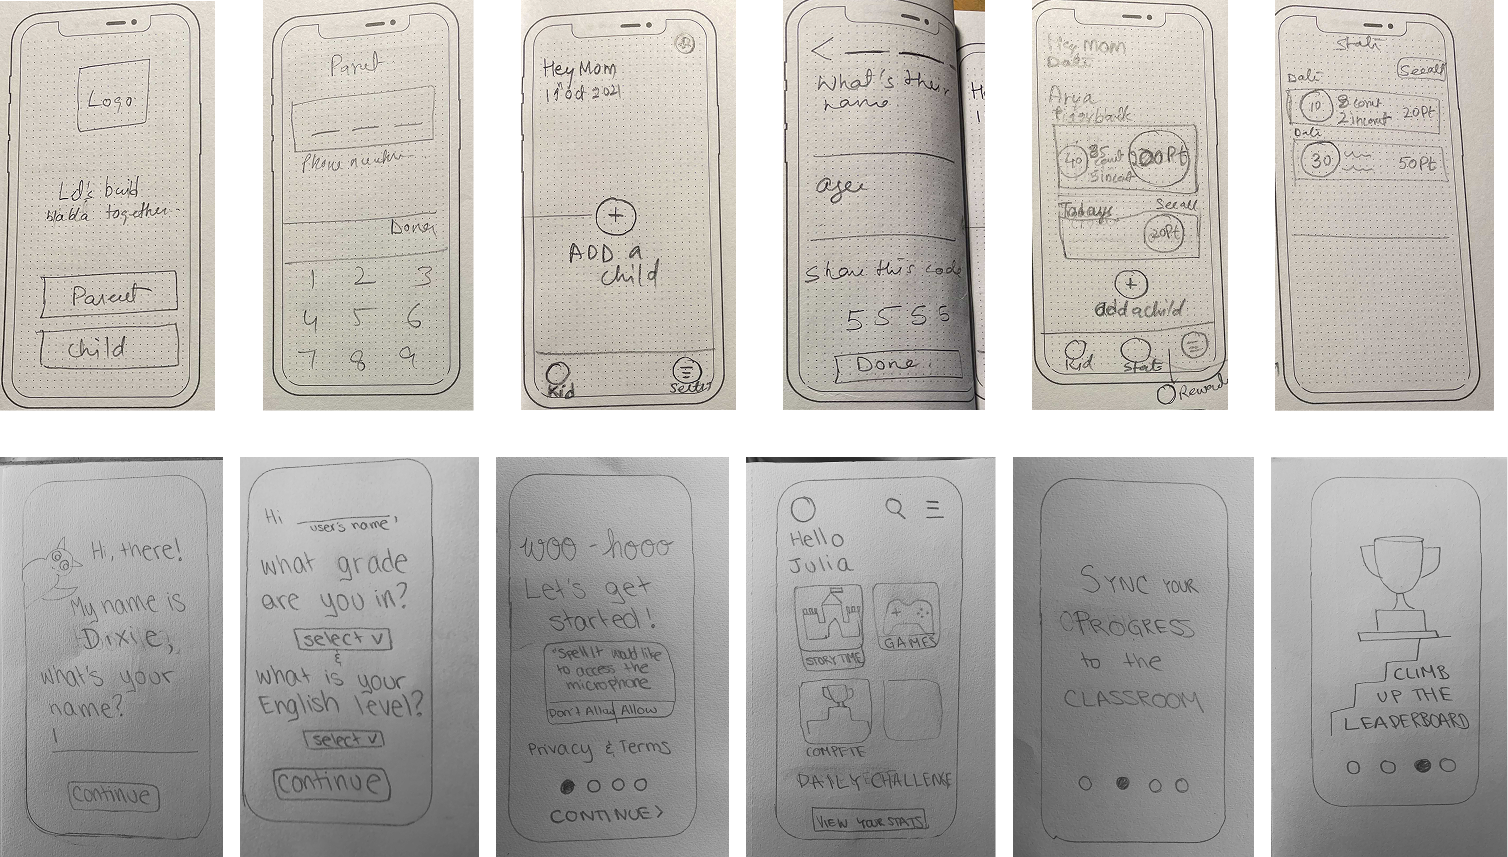 Logo
Let's build
blabla together
Parent
Child
Parent
Phone number
Done
1 2 3
4 5 6
7 8 9
Hey Mom
1st Oct 2021
+
ADD a
child
Kid
What's their
name
age
Share this code
5 5 5 5
Done
Hey Mom
Date
Arya
Piggy back
40
200Pt
Todays
See all
20Pt
+
add a child
Kid
Stats
Reward
Stats
See all
Date
10
20Pt
Date
30
50Pt
Hi, there!
My name is
Dixie,
what's your
name?
continue
Hi
user's name,
what grade
are you in?
select v
&
what is your
English level?
select v
continue
woo-hooo
Let's get
started!
"SpellIt would like
to access the
microphone
Don't Allow Allow
Privacy & Terms
CONTINUE >
Hello
Julia
STORY TIME
GAMES
COMPETE
DAILY CHALLENGE
VIEW YOUR STATS
SYNC YOUR
PROGRESS
to the
CLASSROOM
CLIMB
UP THE
LEADERBOARD